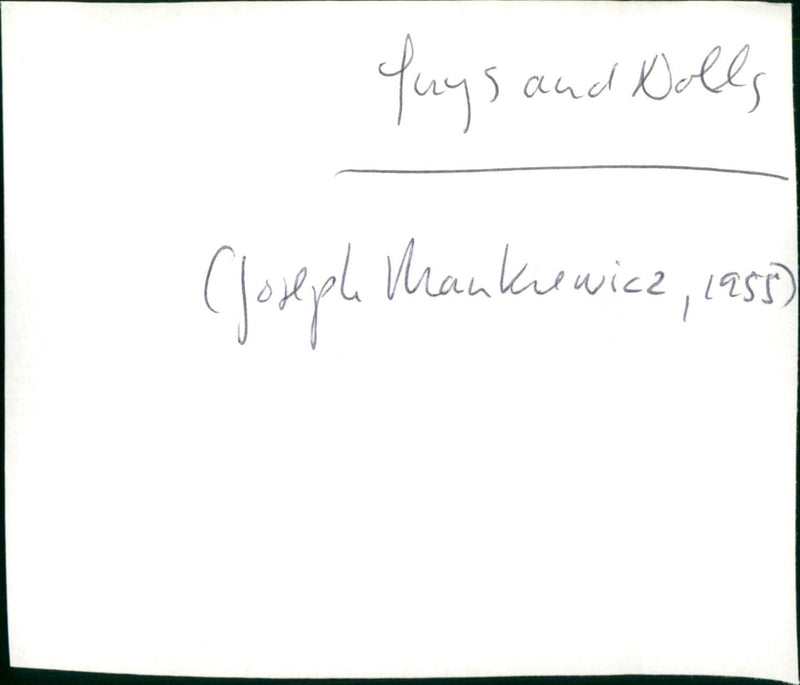 Guys and Dolls
(Joseph Mankiewicz, 1955)